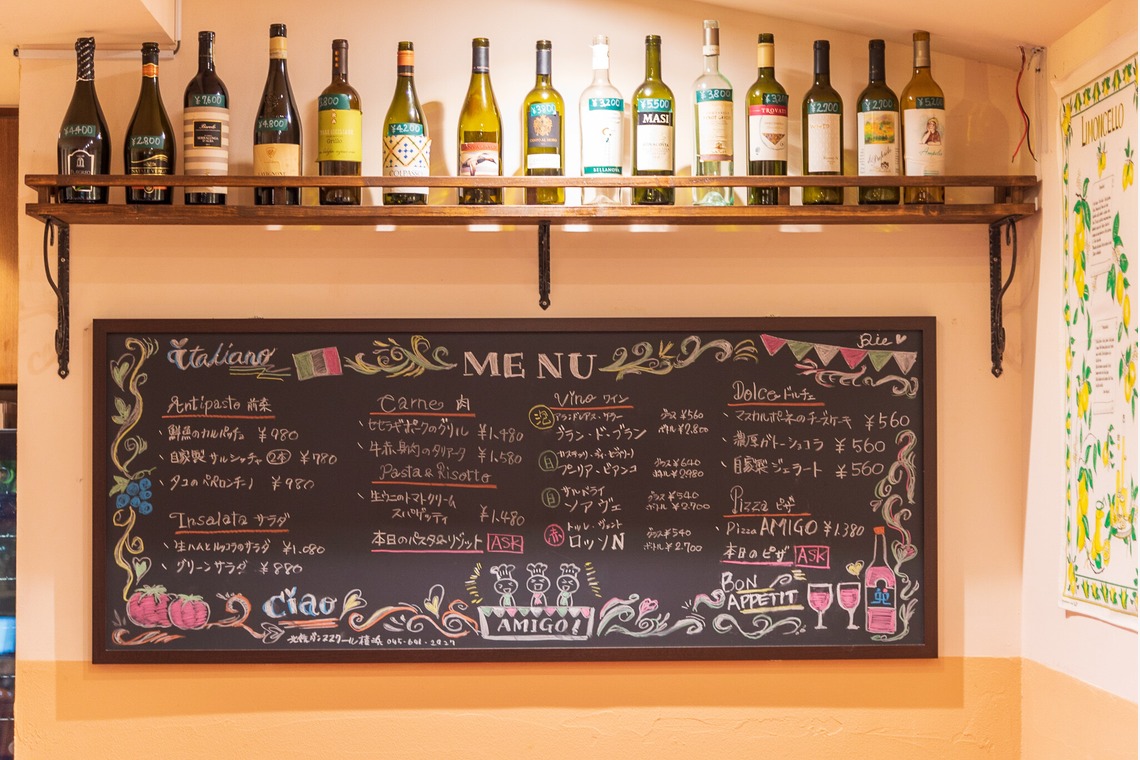 ¥4400
¥2,800
¥7,600
¥4,800
¥4200
¥3,200
¥5,500
MASI
¥3,800
¥2,900
¥2,700
COLPASSO
BELLANOVA
LIMONCELLO
italiano
MENU
Antipasto 前菜
鮮魚のカルパッチョ ¥980
自家製 サルシッチャ 2本 ¥780
タコのペペロンチーノ ¥980
Insalata サラダ
生ハムとルッコラのサラダ ¥1.080
グリーンサラダ ¥880
Carne 肉
ポークのグリル ¥1,480
牛赤身肉のタリアータ ¥1,580
Pasta & Risotto
生ウニのトマトクリーム
スパゲッティ ¥1,480
本日のパスタ&リゾット ASK
Vino ワイン
泡
グラス¥560
ブラン・ド・ブラン ボトル¥2.800
白
グラス¥640
ボトル¥2980
白
グラス¥540
ソアヴェ ボトル¥2.700
赤
グラス¥540
ロッソN ボトル¥2.700
Dolce ドルチェ
マスカルポーネのチーズケーキ ¥560
濃厚ガトーショコラ ¥560
自家製ジェラート ¥560
Pizza ピザ
Pizza AMIGO ¥1.380
本日のピザ ASK
ciao
AMIGO!
BON
APPETIT